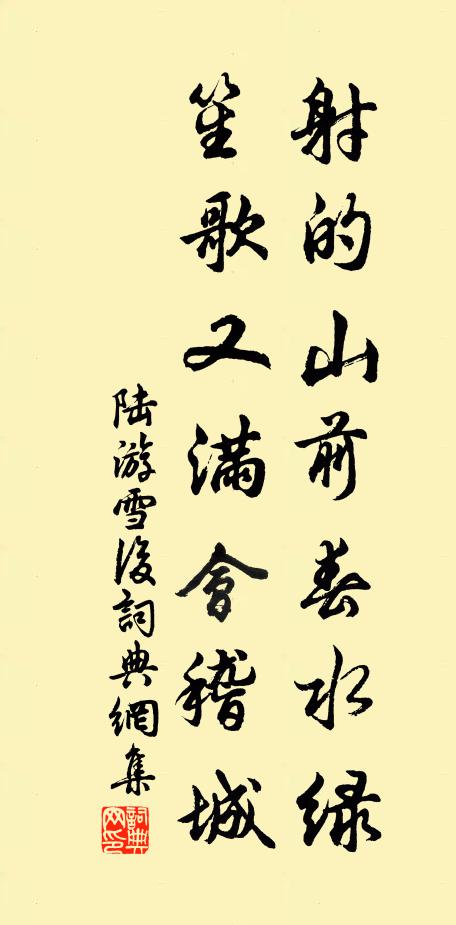 射的山前春水绿
笙歌又滿會稽城
陆游雪後詞典網集
詞典
网印